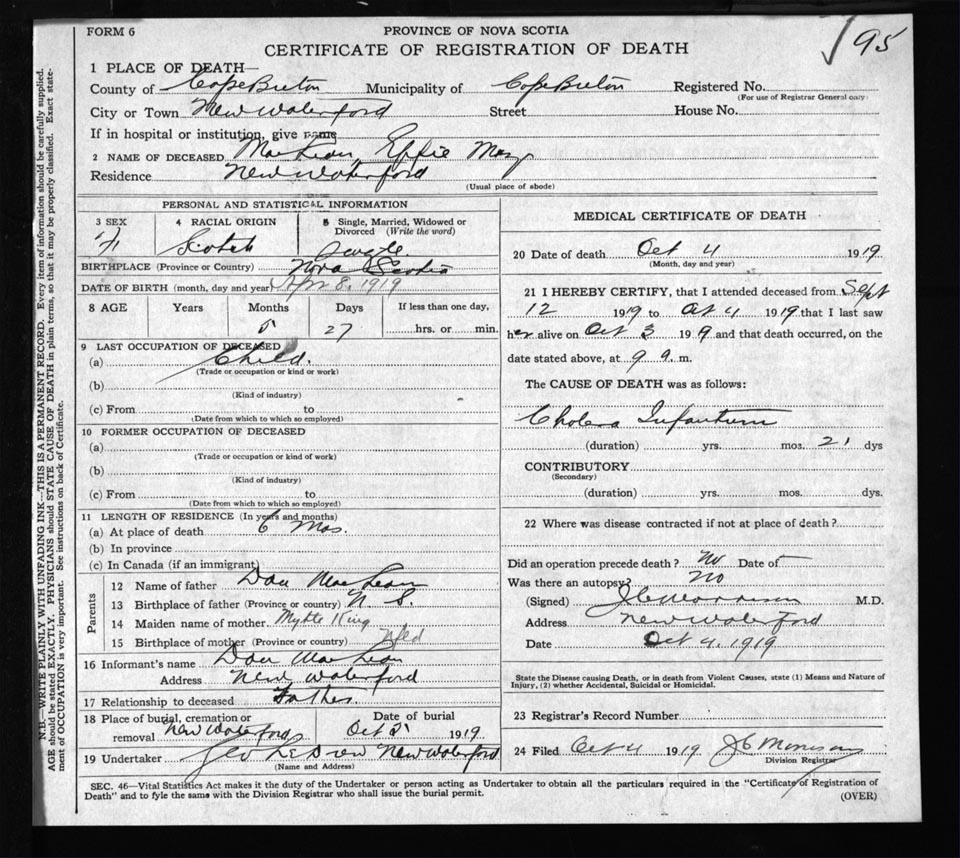 FORM 6
PROVINCE OF NOVA SCOTIA
95
CERTIFICATE OF REGISTRATION OF DEATH
1 PLACE OF DEATH—
County of Cape Breton Municipality of Cape Breton Registered No.
(For use of Registrar General only)
City or Town New Waterford Street House No.
If in hospital or institution, give name
2 NAME OF DECEASED MacLean, Effie May
Residence New Waterford
(Usual place of abode)
PERSONAL AND STATISTICAL INFORMATION
3 SEX 4 RACIAL ORIGIN 5 Single, Married, Widowed or Divorced (Write the word)
F Scotch Single
BIRTHPLACE (Province or Country) Nova Scotia
DATE OF BIRTH (month, day and year) Apr 8, 1919
8 AGE Years Months Days If less than one day,
5 27 hrs. or min.
9 LAST OCCUPATION OF DECEASED
(a) Child.
(Trade or occupation or kind or work)
(b)
(Kind of industry)
(c) From to
(Date from which to which so employed)
10 FORMER OCCUPATION OF DECEASED
(a)
(Trade or occupation or kind of work)
(b)
(Kind of industry)
(c) From to
(Date from which to which so employed)
11 LENGTH OF RESIDENCE (In years and months)
(a) At place of death 6 Mos.
(b) In province
(c) In Canada (if an immigrant)
Parents
12 Name of father Dan MacLean
13 Birthplace of father (Province or country) N S.
14 Maiden name of mother Myrtle King
15 Birthplace of mother (Province or country) Nfld
16 Informant's name Dan MacLean
Address New Waterford
17 Relationship to deceased Father
18 Place of burial, cremation or Date of burial
removal New Waterford Oct 5 1919
19 Undertaker Geo New Waterford
(Name and Address)
MEDICAL CERTIFICATE OF DEATH
20 Date of death Oct 4 1919
(Month, day and year)
21 I HEREBY CERTIFY, that I attended deceased from Sept
12 1919 to Oct 4 1919 that I last saw
her alive on Oct 3 1919 and that death occurred, on the
date stated above, at 9 a. m.
The CAUSE OF DEATH was as follows:
Cholera Infantum
(duration) yrs. mos. 21 dys
CONTRIBUTORY
(Secondary)
(duration) yrs. mos. dys.
22 Where was disease contracted if not at place of death?
Did an operation precede death? No Date of
Was there an autopsy? No
(Signed) J C Morrison M.D.
Address New Waterford
Date Oct 4, 1919
State the Disease causing Death, or in death from Violent Causes, state (1) Means and Nature of
Injury, (2) whether Accidental, Suicidal or Homicidal.
23 Registrar's Record Number
24 Filed Oct 4 1919 J C Morrison
Division Registrar
SEC. 46—Vital Statistics Act makes it the duty of the Undertaker or person acting as Undertaker to obtain all the particulars required in the "Certificate of Registration of
Death" and to fyle the same with the Division Registrar who shall issue the burial permit.
(OVER)
N.B.—WRITE PLAINLY WITH UNFADING INK—THIS IS A PERMANENT RECORD. Every item of information should be carefully supplied.
AGE should be stated EXACTLY. PHYSICIANS should STATE CAUSE OF DEATH in plain terms, so that it may be properly classified. Exact state-
ment of OCCUPATION is very important. See instructions on back of Certificate.